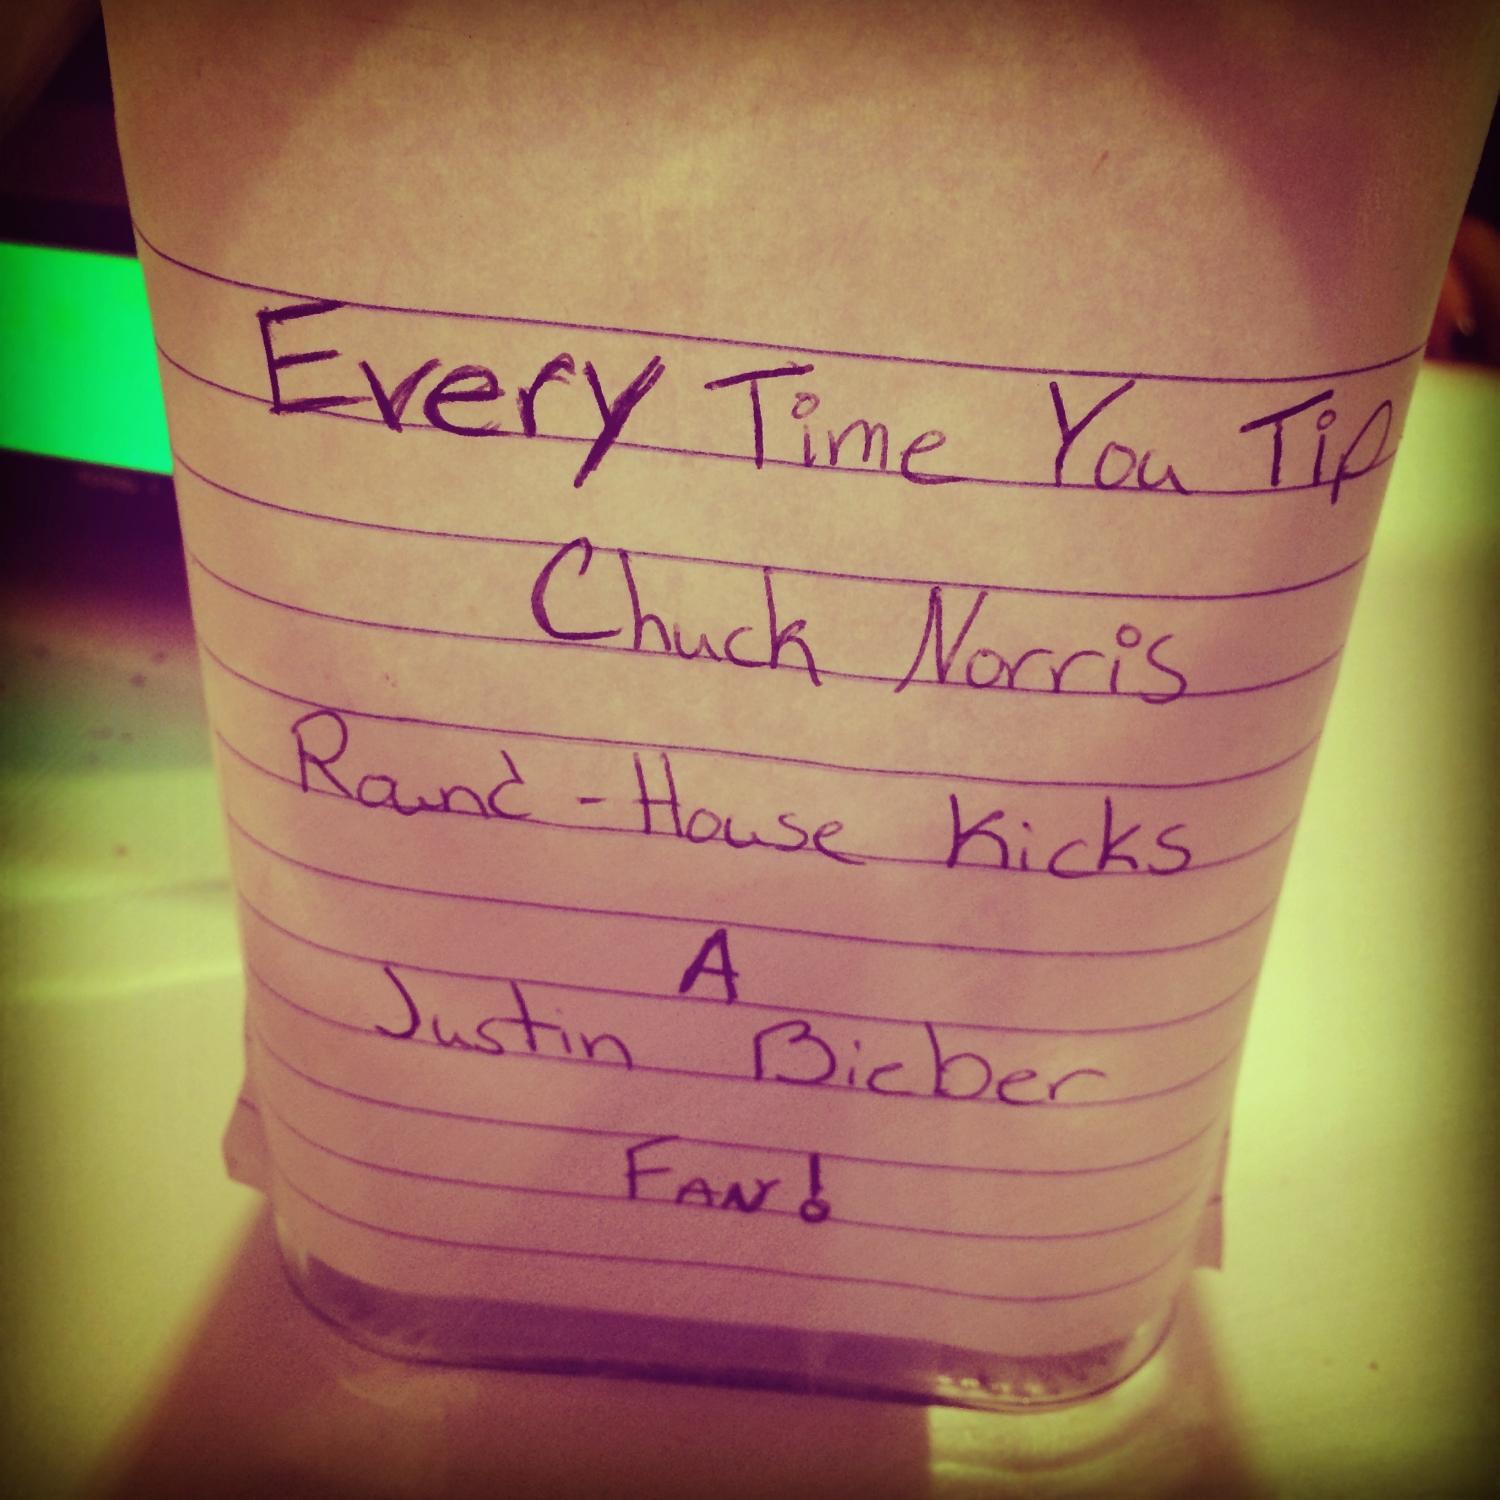 Every Time You Tip
Chuck Norris
Round-House Kicks
A
Justin Bieber
FAN!